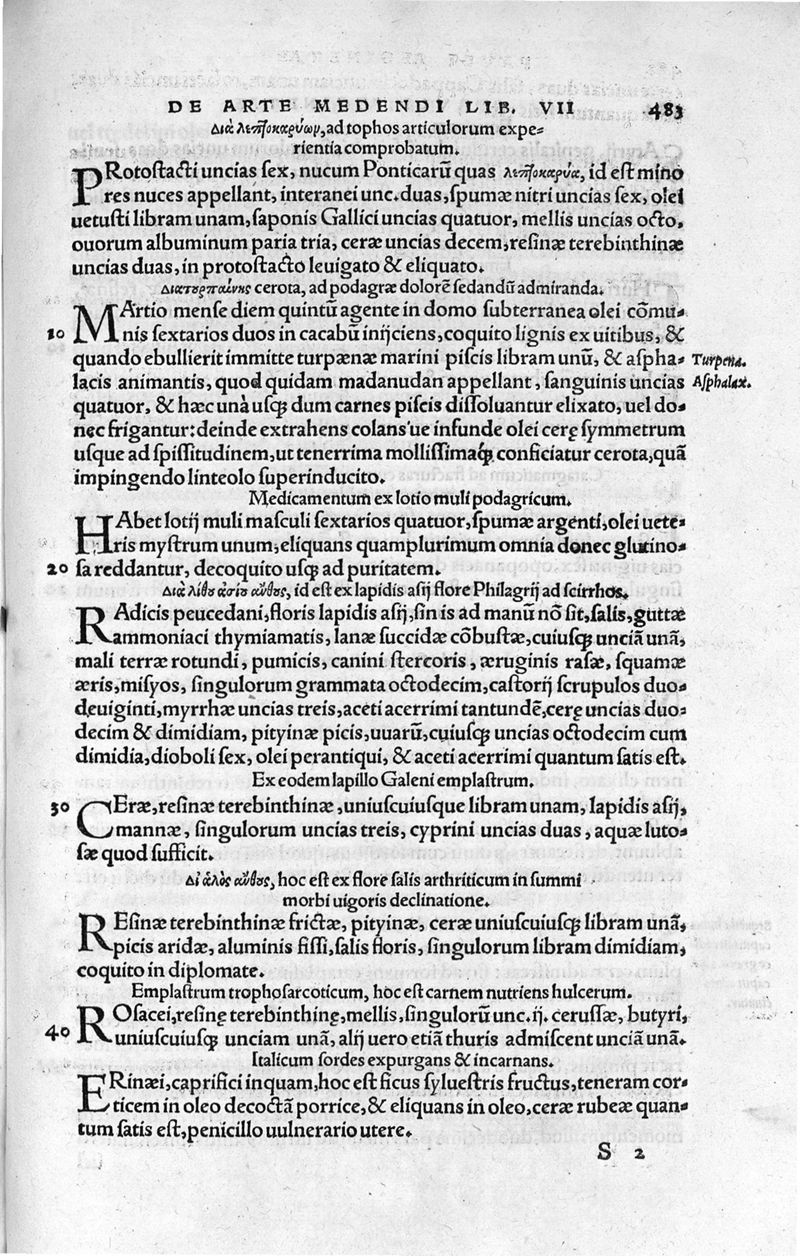 DE ARTE MEDENDI LIB. VII 483
Διὰ λεπτοκαρύων, ad tophos articulorum expe=
rientia comprobatum.
PRotostacti uncias sex, nucum Ponticarũ quas λεπτοκαρύα, id est mino
res nuces appellant, interanei unc. duas, spumæ nitri uncias sex, olei
uetusti libram unam, saponis Gallici uncias quatuor, mellis uncias octo,
ouorum albuminum paria tria, ceræ uncias decem, resinæ terebinthinæ
uncias duas, in protostacto leuigato & eliquato.
Διατουρπαίνης cerota, ad podagræ dolorẽ sedandũ admiranda.
MArtio mense diem quintũ agente in domo subterranea olei cõmu=
10 nis sextarios duos in cacabũ inijciens, coquito lignis ex uitibus, &
quando ebullierit immitte turpænæ marini piscis libram unũ, & aspha= Turpena.
lacis animantis, quod quidam madanudan appellant, sanguinis uncias Asphalax.
quatuor, & hæc unà usq; dum carnes piscis dissoluantur elixato, uel do=
nec frigantur: deinde extrahens colans'ue infunde olei cerę symmetrum
usque ad spissitudinem, ut tenerrima mollissimaq́; conficiatur cerota, quã
impingendo linteolo superinducito.
Medicamentum ex lotio muli podagricum.
HAbet lotij muli masculi sextarios quatuor, spumæ argenti, olei uete=
ris mystrum unum, eliquans quamplurimum omnia donec glutino=
20 sa reddantur, decoquito usq; ad puritatem.
Διὰ λίθου ἀσίου ἄνθους, id est ex lapidis asij flore Philagrij ad scirrhos.
RAdicis peucedani, floris lapidis asij, sin is ad manũ nõ sit, salis, guttæ
ammoniaci thymiamatis, lanæ succidæ cõbustæ, cuiusq; unciã unã,
mali terræ rotundi, pumicis, canini stercoris, æruginis rasæ, squamæ
æris, misyos, singulorum grammata octodecim, castorij scrupulos duo=
deuiginti, myrrhæ uncias treis, aceti acerrimi tantundẽ, cerę uncias duo=
decim & dimidiam, pityinæ picis, uuarũ, cuiusq; uncias octodecim cum
dimidia, dioboli sex, olei perantiqui, & aceti acerrimi quantum satis est.
Ex eodem lapillo Galeni emplastrum.
30 CEræ, resinæ terebinthinæ, uniuscuiusque libram unam, lapidis asij,
mannæ, singulorum uncias treis, cyprini uncias duas, aquæ luto=
sæ quod sufficit.
Δι' ἁλὸς ἄνθους, hoc est ex flore salis arthriticum in summi
morbi uigoris declinatione.
REsinæ terebinthinæ frictæ, pityinæ, ceræ uniuscuiusq; libram unã,
picis aridæ, aluminis fissi, salis floris, singulorum libram dimidiam,
coquito in diplomate.
Emplastrum trophosarcoticum, hoc est carnem nutriens hulcerum.
ROsacei, resinę terebinthinę, mellis, singulorũ unc. ij. cerussæ, butyri,
40 uniuscuiusq; unciam unã, alij uero etiã thuris admiscent unciã unã.
Italicum sordes expurgans & incarnans.
ERinæi, caprifici inquam, hoc est ficus syluestris fructus, teneram cor=
ticem in oleo decoctã porrice, & eliquans in oleo, ceræ rubeæ quan=
tum satis est, penicillo uulnerario utere.
S 2